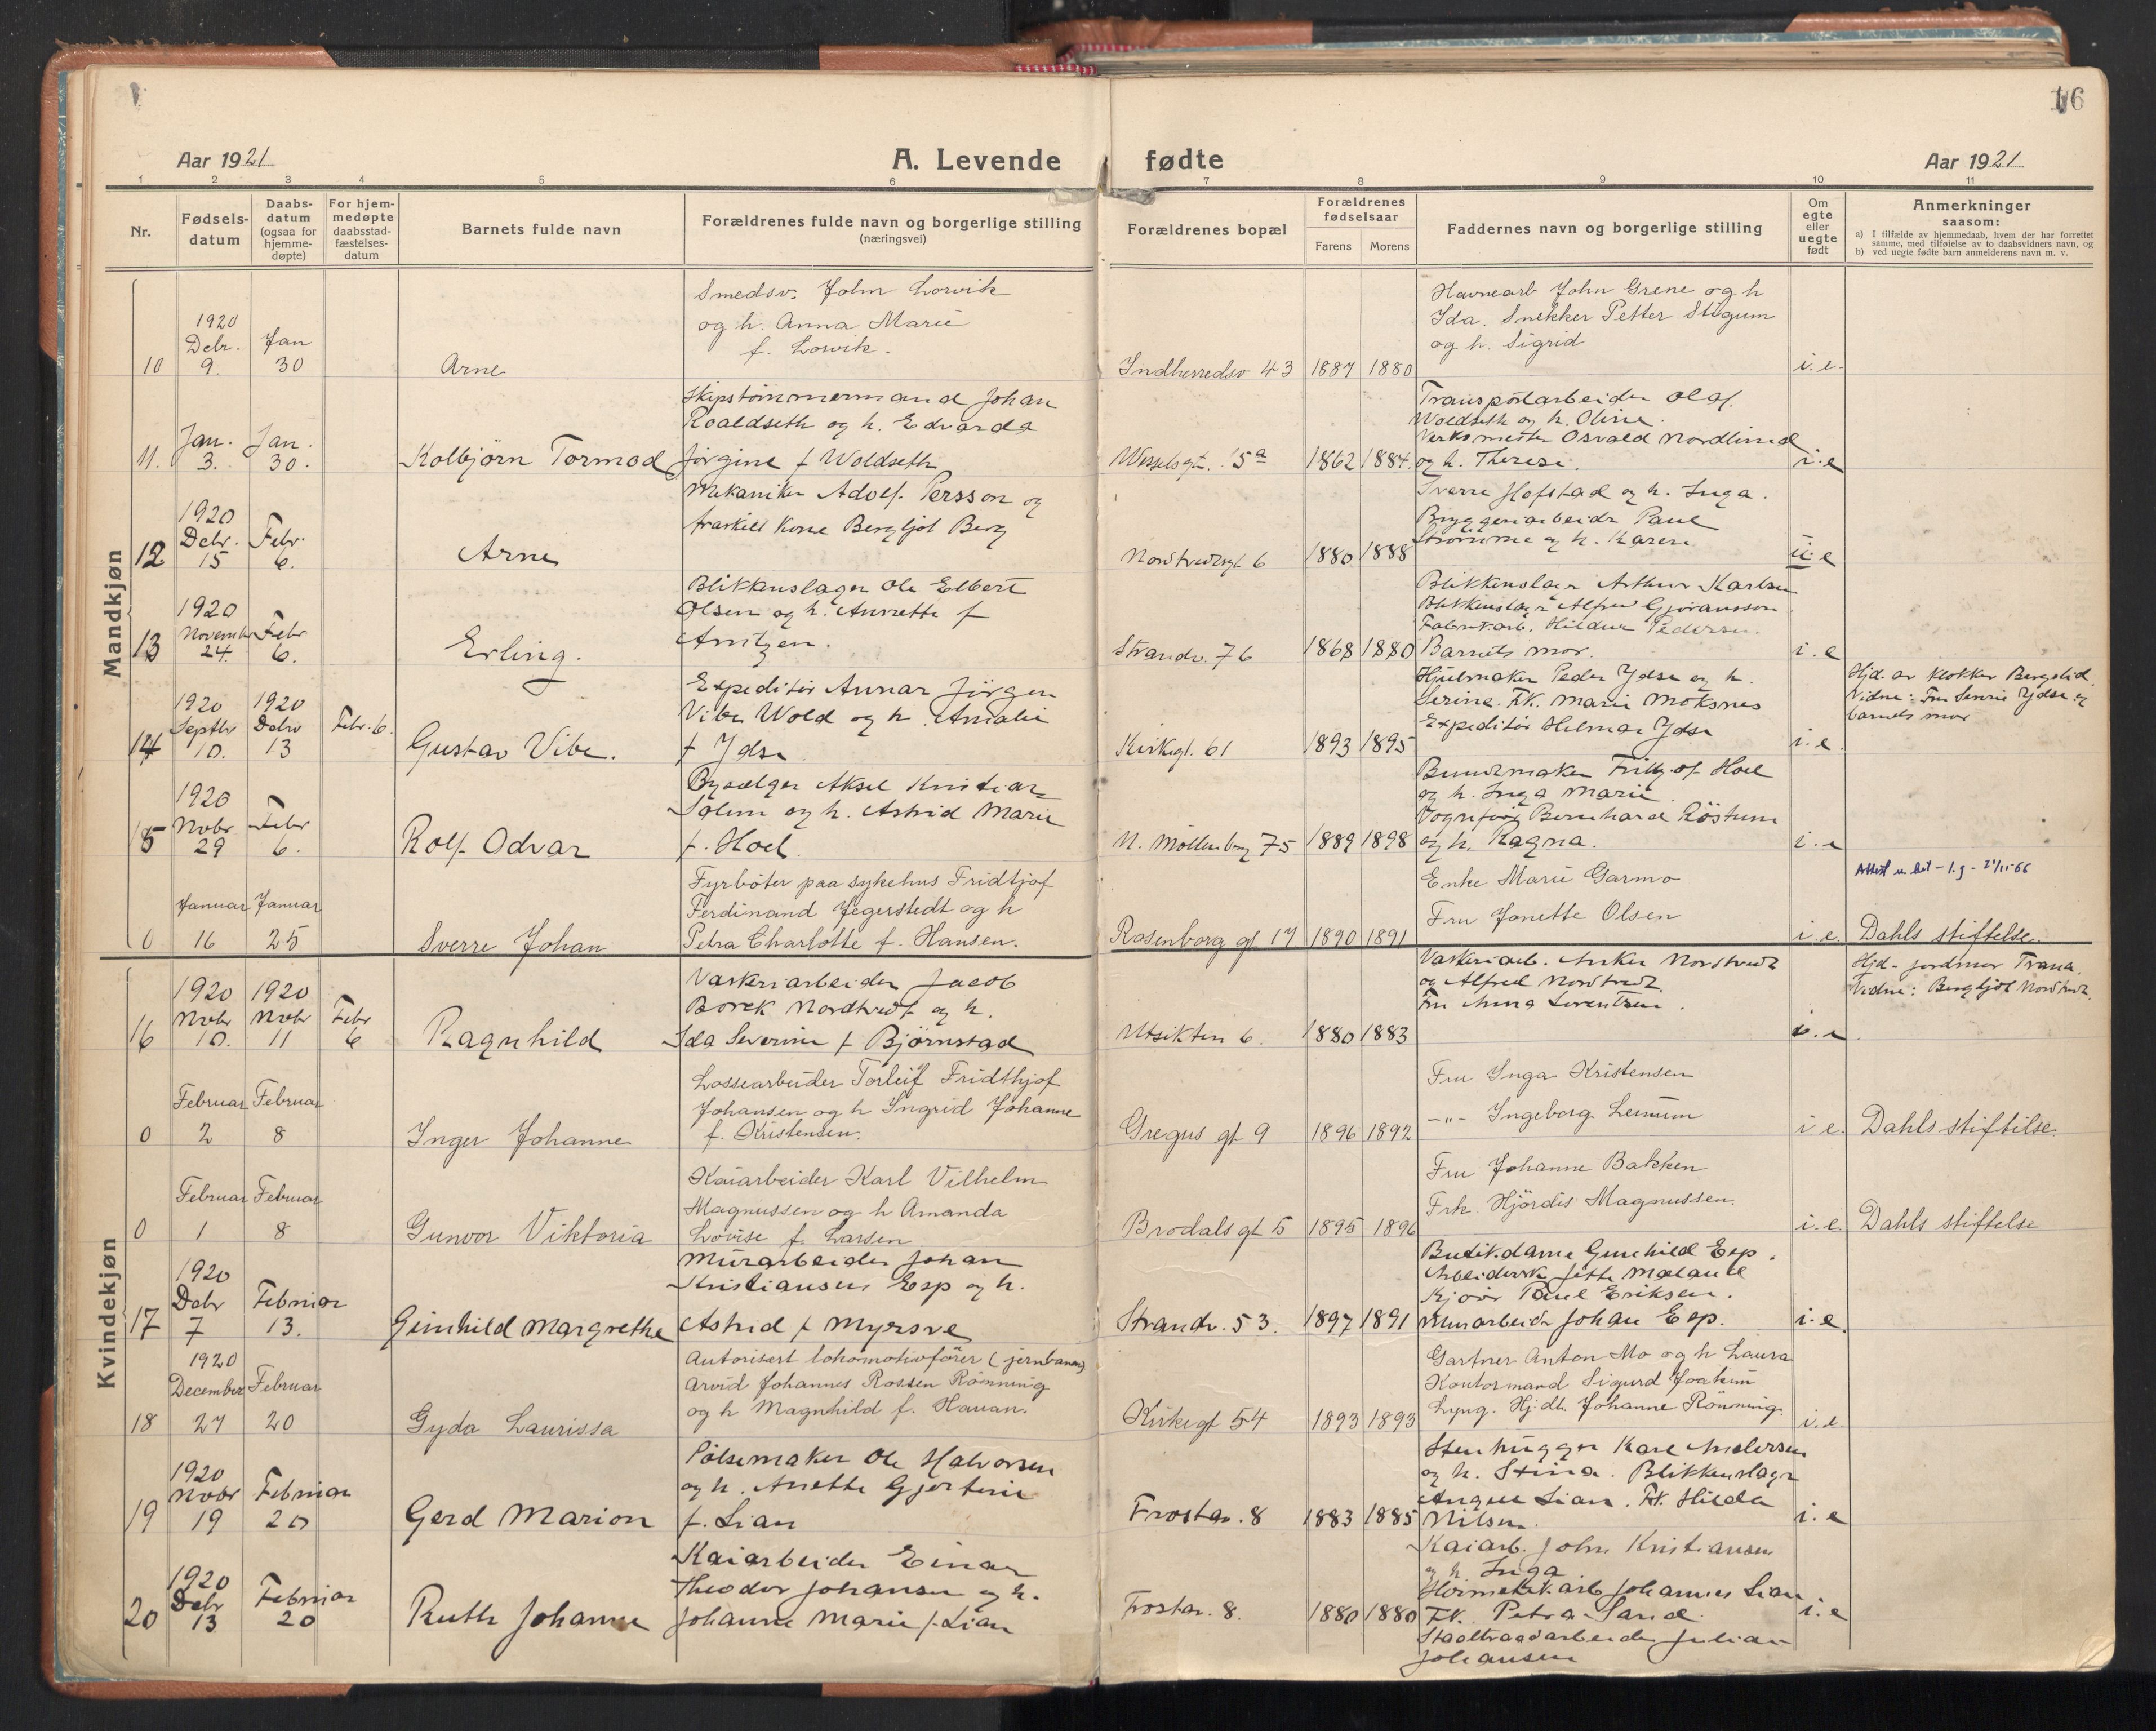 16
Aar 1921
A. Levende fødte
Aar 1921
1 2 3 4 5 6 7 8 9 10 11
Nr.
Fødsels-
datum
Daabs-
datum
(ogsaa for
hjemme-
døpte)
For hjem-
medøpte
daabsstad-
fæstelses-
datum
Barnets fulde navn
Forældrenes fulde navn og borgerlige stilling
(næringsvei)
Forældrenes bopæl
Forældrenes
fødselsaar
Farens Morens
Faddernes navn og borgerlige stilling
Om
egte
eller
uegte
født
Anmerkninger
saasom:
a) I tilfælde av hjemmedaab, hvem der har forrettet
samme, med tilføielse av to daabsvidners navn, og
b) ved uegte fødte barn anmelderens navn m. v.
Mandkjøn
10
1920
Debr.
9.
Jan
30
Arne
Smedsv. John Lorvik
og h. Anna Marie
f. Lorvik.
Indherredsv 43
1887 1880
Havnearb John Grene og h
Ida. Snekker Petter Stigum
og h. Sigrid
i. e.
11.
Jan.
3.
Jan.
30.
Kolbjörn Tormod
Skipstømmermand Johan
Roaldseth og h. Edvarda
Jörgine f Woldseth
Wesselsgt. 5a
1862 1884.
Transportarbeider Olaf
Woldseth og h. Oline.
Verksmester Osvald Nordlund
og h. Therese.
i. e
12
1920
Debr.
15
Febr.
6.
Arne
Mekaniker Adolf Persson og
fraskilt Kone Bergljot Berg
Nordtvedtsgt. 6
1880 1888
Sverre Hofstad og h. Inga.
Bryggeriarbeider Paul
Strømme og h. Karen
u. e
13
1920
November
24.
Febr
6.
Erling.
Blikkenslager Ole Elbert
Olsen og h. Annette f
Arntzen.
Strandv. 76
1868 1880
Blikkenslager Arthur Karlsen
Blikkenslager Alfred Gjøransson
Fabrikarb. Hildur Pedersen.
Barnets mor.
i. e
14
1920
Septbr
10.
1920
Debr
13
Febr. 6.
Gustav Vibe.
Expeditør Annar Jörgen
Vibe Wold og h. Amalie
f Ydse
Kirkegt. 61
1893 1895
Hjulmaker Peder Ydse og h.
Serine. Frk. Marie Moksnes
Expeditör Helmar Ydse
i. e
Hjd. av klokker Bergslid.
Vidne: Fru Serine Ydse og
barnets mor
15
1920
Nobr
29
Febr
6.
Rolf Odvar
Bysælger Aksel Kristian
Solem og h. Astrid Marie
f. Hoel
N. Möllenberg 75
1889 1898
Bundtmaker Fritjof Hoel
og h. Inga Marie.
Vognfører Bernhard Röstum
og h. Ragna.
i. e
0
Januar
16
Januar
25
Sverre Johan
Fyrböter paa sykehus Fridtjof
Ferdinand Jegerstedt og h
Petra Charlotte f. Hansen.
Rosenborg gt 17
1890 1891
Enke Marie Garmo
Fru Jonette Olsen
i. e.
Attest u. bet - 1.g - 21/11-66
Dahls stiftelse.
Kvindekjøn
16
1920
Nobr
10.
1920
Nobr
11
Febr
6
Ragnhild
Vaskeriarbeider Jacob
Borck Nordtvedt og h.
Ida Severine f Björnstad
Utsikten 6.
1880 1883
Vaskeriarb. Anker Nordtvedt
og Alfred Nordtvedt
Fru Anna Lorentzen.
i. e
Hjd - jordmor Trana.
Vidne: Bergljot Nordtvedt.
0
Februar
2
Februar
8
Inger Johanne
Lossearbeider Torleif Fridthjof
Johansen og h Ingrid Johanne
f. Kristensen.
Gregus gt 9
1896 1892
Fru Inga Kristensen
-"- Ingeborg Lemum
i e.
Dahls stiftelse.
0
Februar
1
Februar
8
Gunvor Viktoria
Kaiarbeider Karl Vilhelm
Magnussen og h Amanda
Lovise f. Larsen
Brodals gt 5
1895 1896
Fru Johanne Bakken
Frk. Hjördis Magnussen.
i. e.
Dahls stiftelse
17
1920
Debr
7
Februar
13.
Gunhild Margrethe
Murarbeider Johan
Kristiansen Esp og h.
Astrid f Myrsve
Strandv. 53.
1897 1891
Butikdame Gunhild Esp.
Arbeiderske Jette Mæland
Kjører Paul Eriksen.
Murarbeider Johan Esp.
i. e.
18
1920
December
27
Februar
20
Gyda Laurissa
Autorisert lokomotivfører (jernbanen)
Arvid Johannes Rossen Rönning
og h Magnhild f. Hauan.
Kirkegt 54
1893 1893
Gartner Anton Mo og h Laura
Kontormand Sigurd Joakim
Lyng. Hjdt. Johanne Rönning.
i. e.
19
1920
Nobr
19
Februar
20
Gerd Marion
Pølsemaker Ole Halvorsen
og h. Anette Gjertine
f. Lian
Frostav. 8
1883 1885
Stenhugger Karl Andersen
og h. Stina. Blikkenslager
August Lian. Frk. Hilda
Nilsen.
i. e
20
1920
Debr
13
Februar
20
Ruth Johanne
Kaiarbeider Einar
Theodor Johansen og h.
Johanne Marie f. Lian
Frostav. 8.
1880 1880
Kaiarb. John Kristiansen
og h. Inga
Hermetikarb Johannes Lian
Frk. Petra Sand.
Johansen
i. e